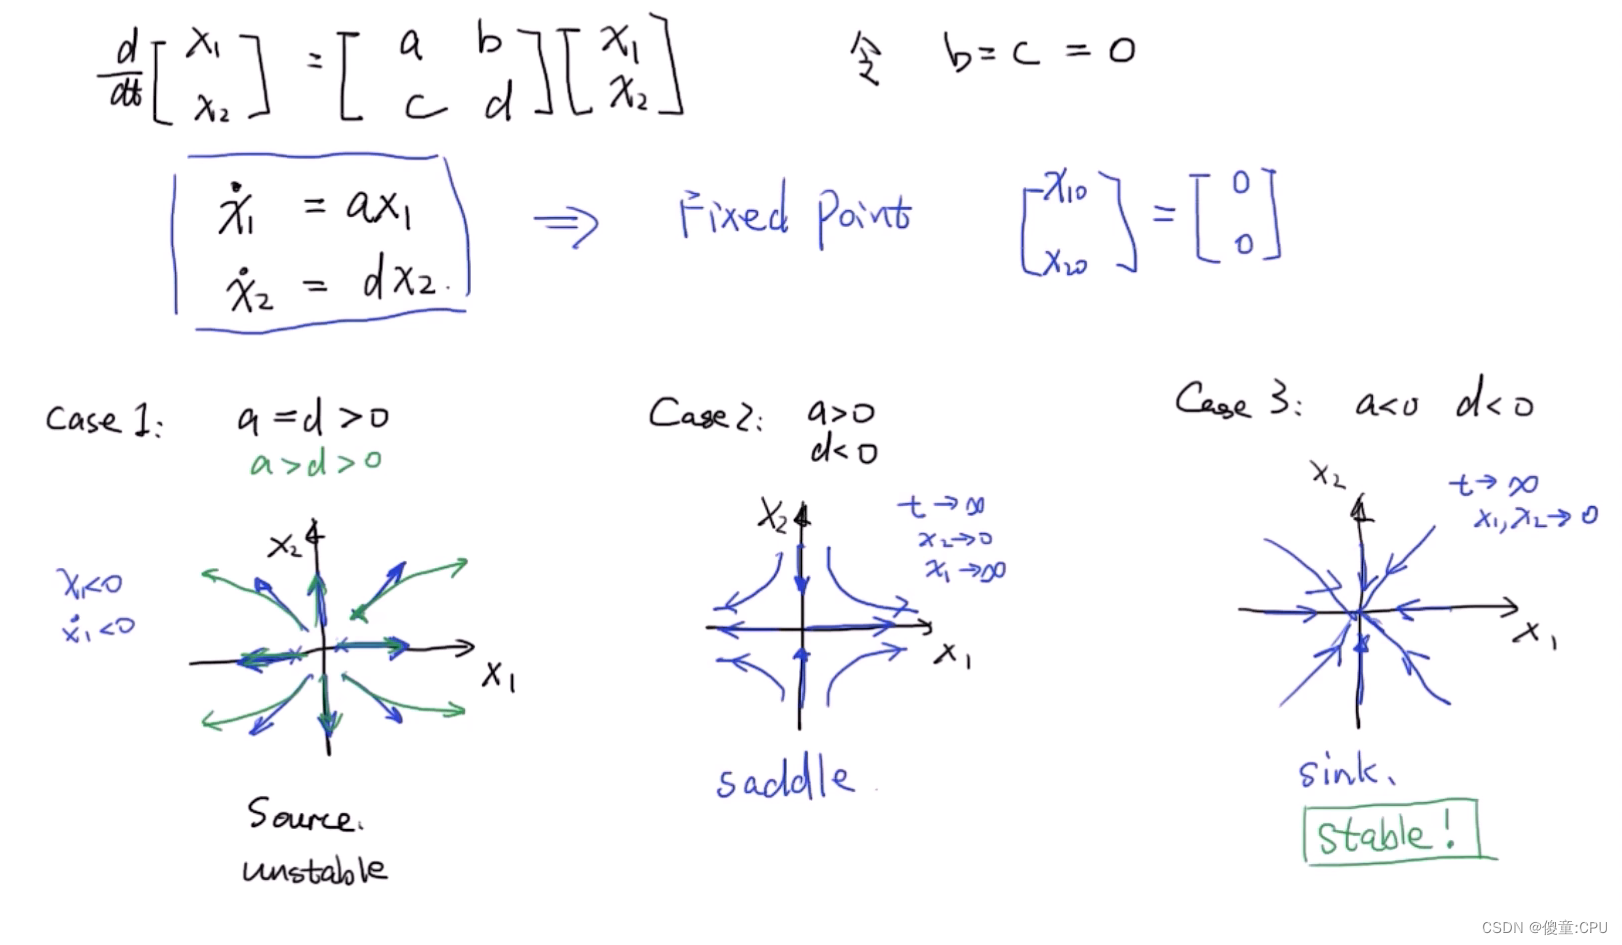 d/dt [x₁ x₂] = [a b c d] [x₁ x₂] 令 b = c = 0
ẋ₁ = ax₁
ẋ₂ = dx₂.
⇒ Fixed Point [x₁₀ x₂₀] = [0 0]
Case 1: a = d > 0
a > d > 0
x₂
x₁<0
ẋ₁<0
x₁
Source.
unstable
Case 2: a>0
d<0
x₂
t→∞
x₂→0
x₁→∞
x₁
saddle.
Case 3: a<0 d<0
x₂
t→∞
x₁,x₂→0
x₁
sink.
stable!
CSDN @傻童:CPU